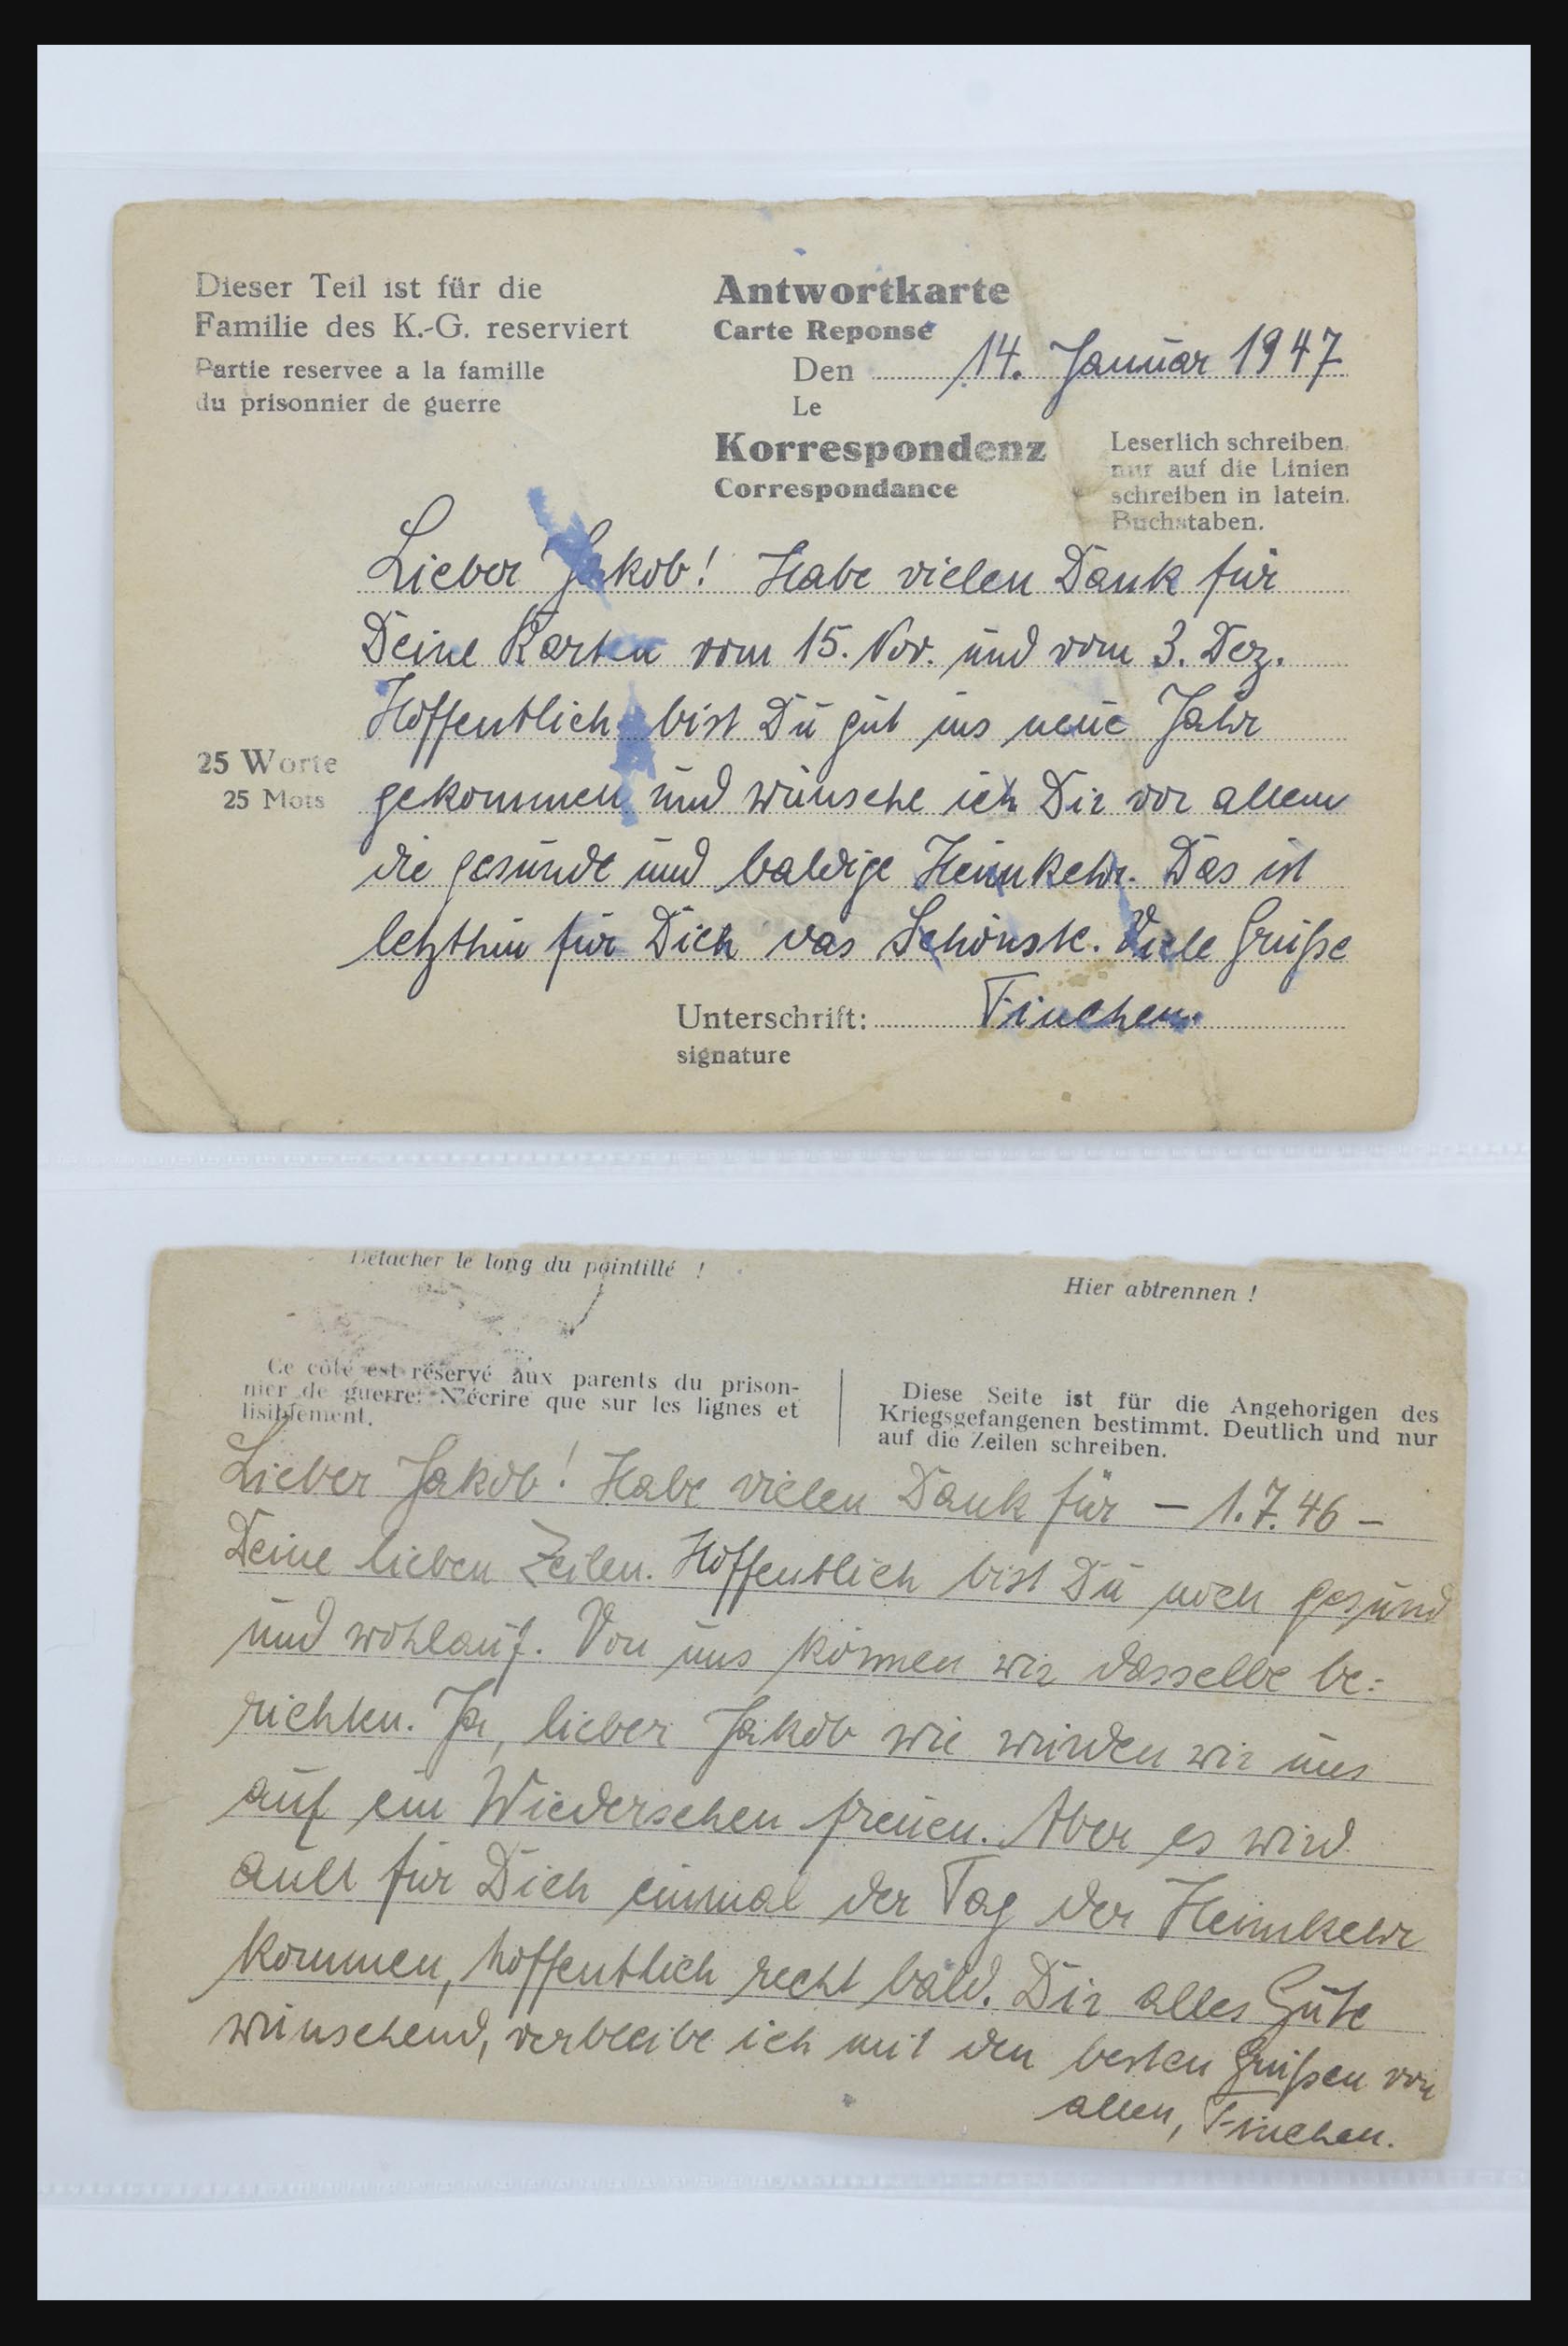 Dieser Teil ist für die
Familie des K.-G. reserviert
Partie reservee a la famille
du prisonnier de guerre
Antwortkarte
Carte Reponse
Den 14. Januar 1947
Le
Korrespondenz
Correspondance
Leserlich schreiben,
nur auf die Linien
schreiben in latein.
Buchstaben.
25 Worte
25 Mots
Lieber Jakob! Habe vielen Dank für
Deine Karten vom 15. Nov. und vom 3. Dez.
Hoffentlich bist Du gut ins neue Jahr
gekommen und wünsche ich Dir vor allem
die gesunde und baldige Heimkehr. Das ist
letzthin für Dich das Schönste. Viele Grüße
Unterschrift: Finchen.
signature
Détacher le long du pointillé !
Hier abtrennen !
Ce côté est réservé aux parents du prison-
nier de guerre. N'écrire que sur les lignes et
lisiblement.
Diese Seite ist für die Angehorigen des
Kriegsgefangenen bestimmt. Deutlich und nur
auf die Zeilen schreiben.
Lieber Jakob! Habe vielen Dank für – 1.7.46 –
Deine lieben Zeilen. Hoffentlich bist Du noch gesund
und wohlauf. Von uns können wir dasselbe be-
richten. Ja, lieber Jakob wie würden wir uns
auf ein Wiedersehen freuen. Aber es wird
auch für Dich einmal der Tag der Heimkehr
kommen, hoffentlich recht bald. Dir alles Gute
wünschend, verbleibe ich mit den besten Grüßen von
allen, Finchen.